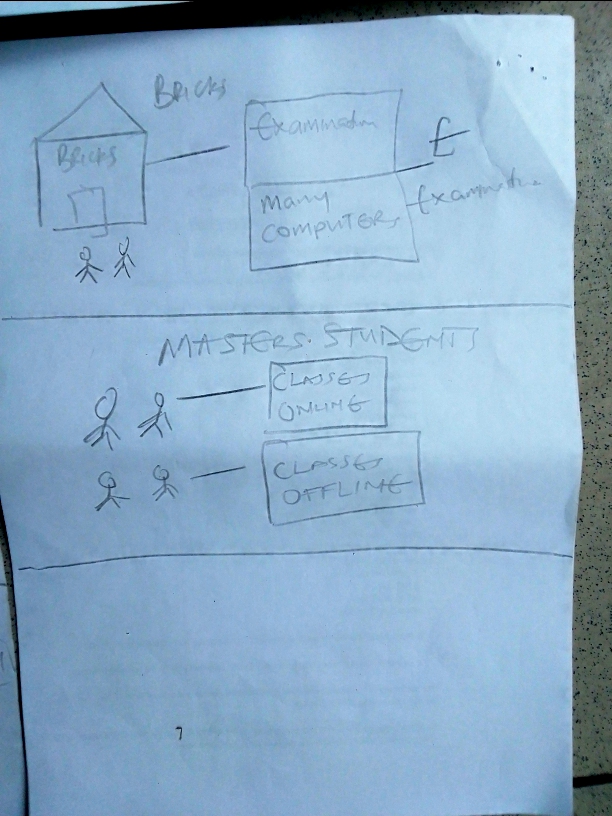 BRICKS
BRICKS
Examination
£
Many
COMPUTERS
Examination
MASTERS STUDENTS
CLASSES
ONLINE
CLASSES
OFFLINE